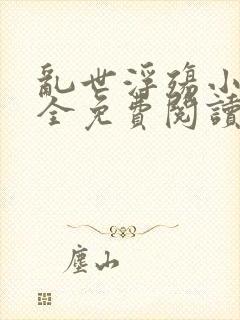 亂世浮殤小
全免費閱讀
塵山